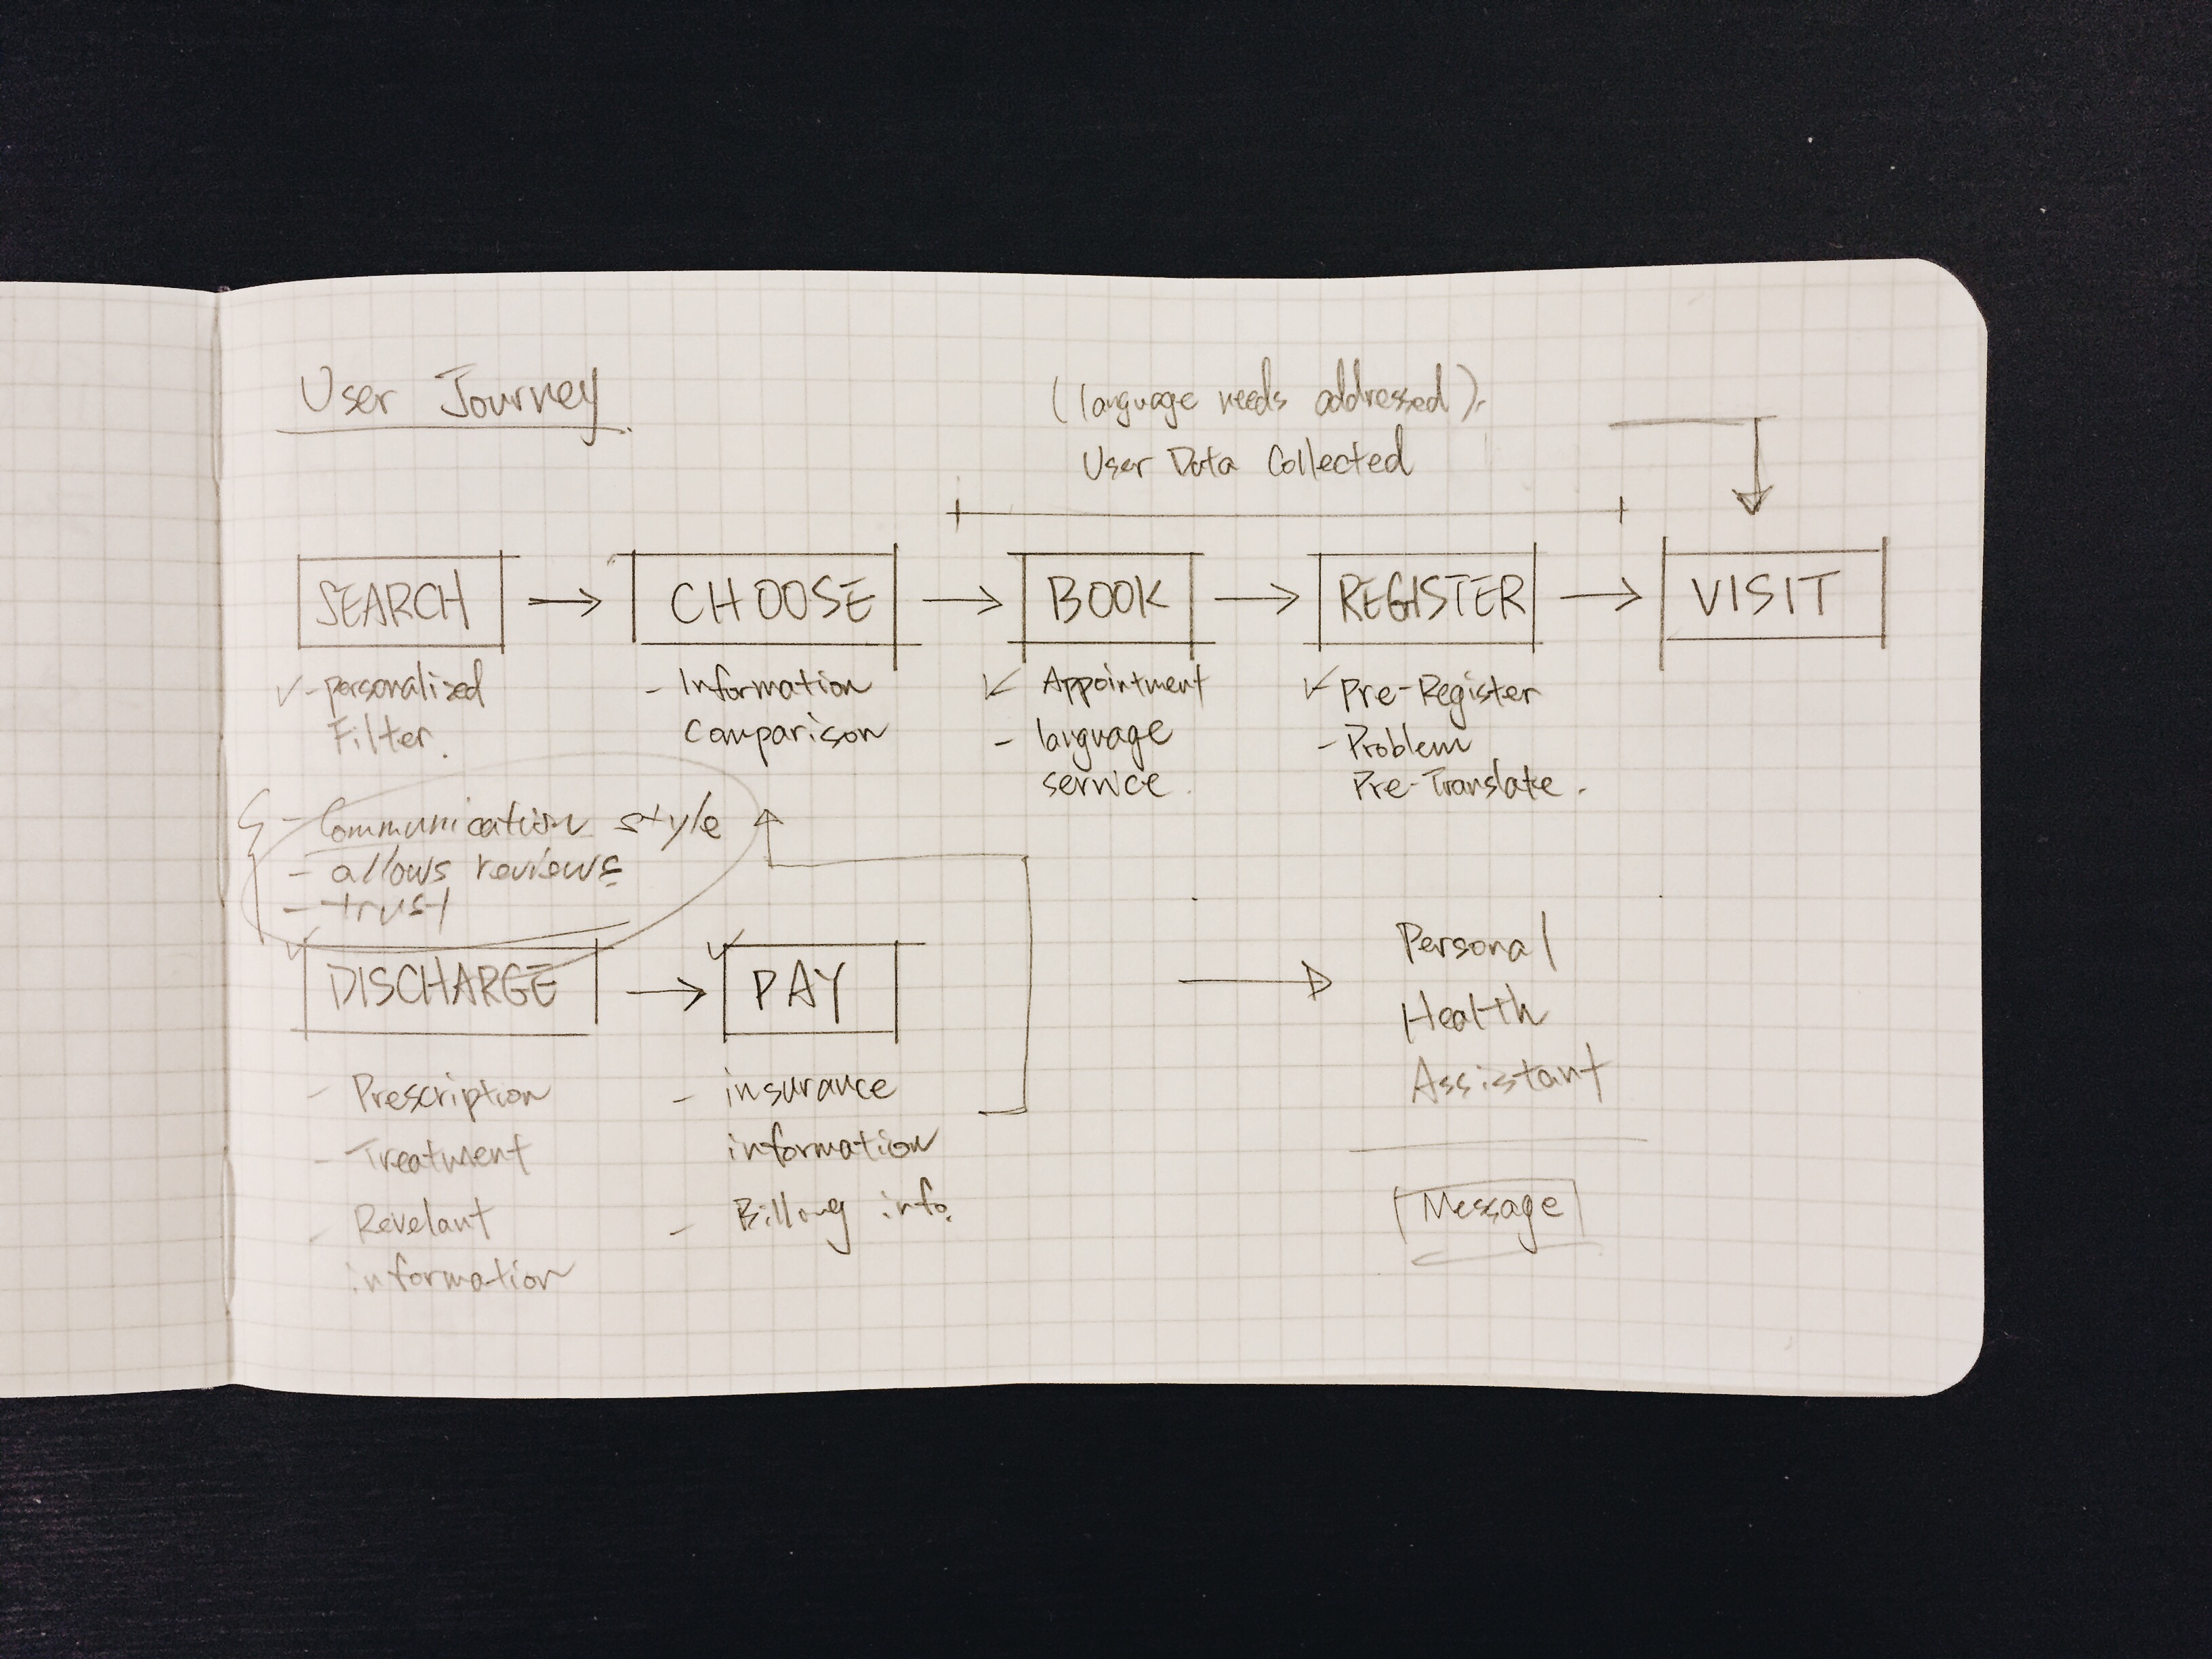 User Journey
(language needs addressed).
User Data Collected
SEARCH
CHOOSE
BOOK
REGISTER
VISIT
- personalized
Filter.
- Information
Comparison
Appointment
- language
service.
Pre-Register
- Problem
Pre-Translate.
- Communication style
- allows reviews
- trust
DISCHARGE
PAY
- Prescription
- Treatment
- Revelant
information
- insurance
information
- Billong info.
Personal
Health
Assistant
Message